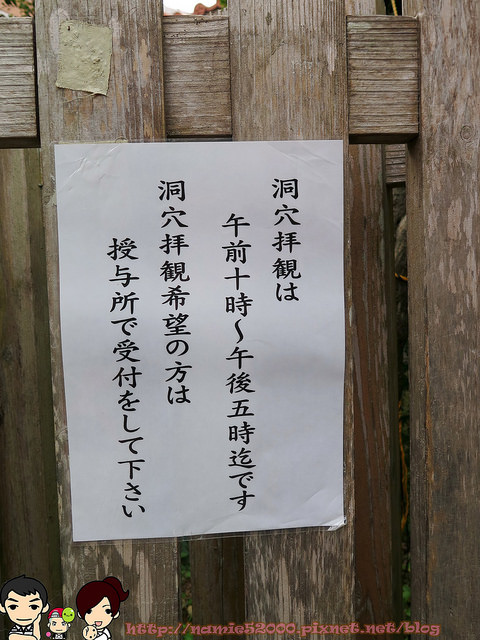 洞穴拝観は
午前十時～午後五時迄です
洞穴拝観希望の方は
授与所で受付をして下さい
http://namie52000.pixnet.net/blog